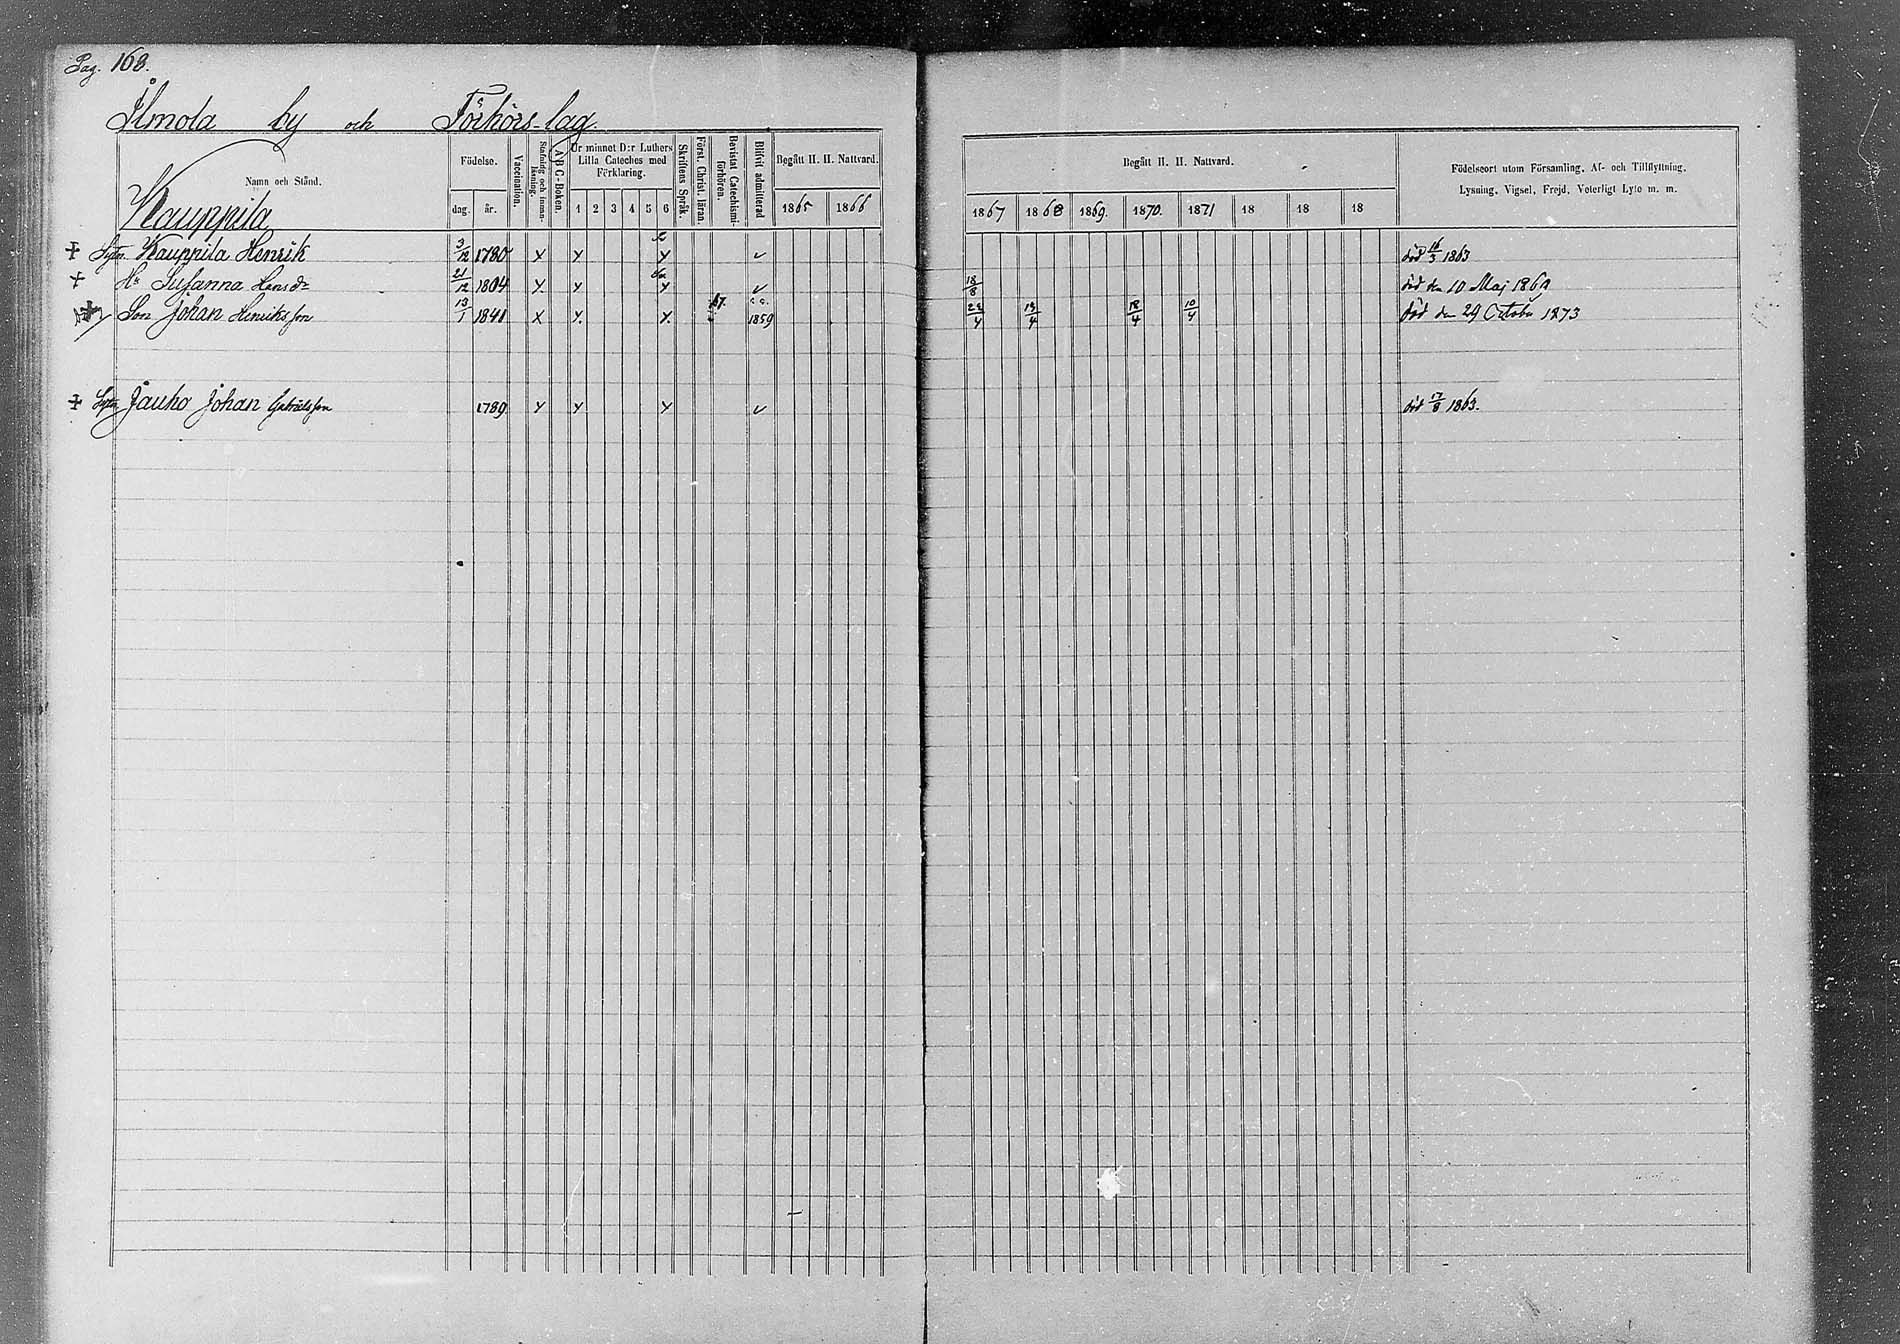 Pag. 168.
Ilmola by och Förhörs-lag.
Namn och Stånd.
Födelse.
dag. år.
Vaccination.
Stafning och innan-läsning.
A B C-Boken.
Ur minnet D:r Luthers Lilla Cateches med Förklaring.
1 2 3 4 5 6
Skriftens Språk.
Först. Christ. läran.
Bevistat Catechismi-förhören.
Blifvit admitterad
Begått H. H. Nattvard.
1865 1866
Begått H. H. Nattvard.
1867 1868 1869. 1870. 1871 18 18 18
Födelseort utom Församling, Af- och Tillflyttning,
Lysning, Vigsel, Frejd, Veterligt Lyte m. m.
Kauppila
Kauppila Henrik 3/12 1780 död 16/3 1863
H: Susanna Hansdr 21/12 1804 18/8 död den 10 Maj 1869
Son Johan Henriksson 13/1 1841 1859 22/4 13/4 18/4 10/4 död den 29 October 1873
Jauho Johan Gabrielsson 1789 död 17/8 1863.